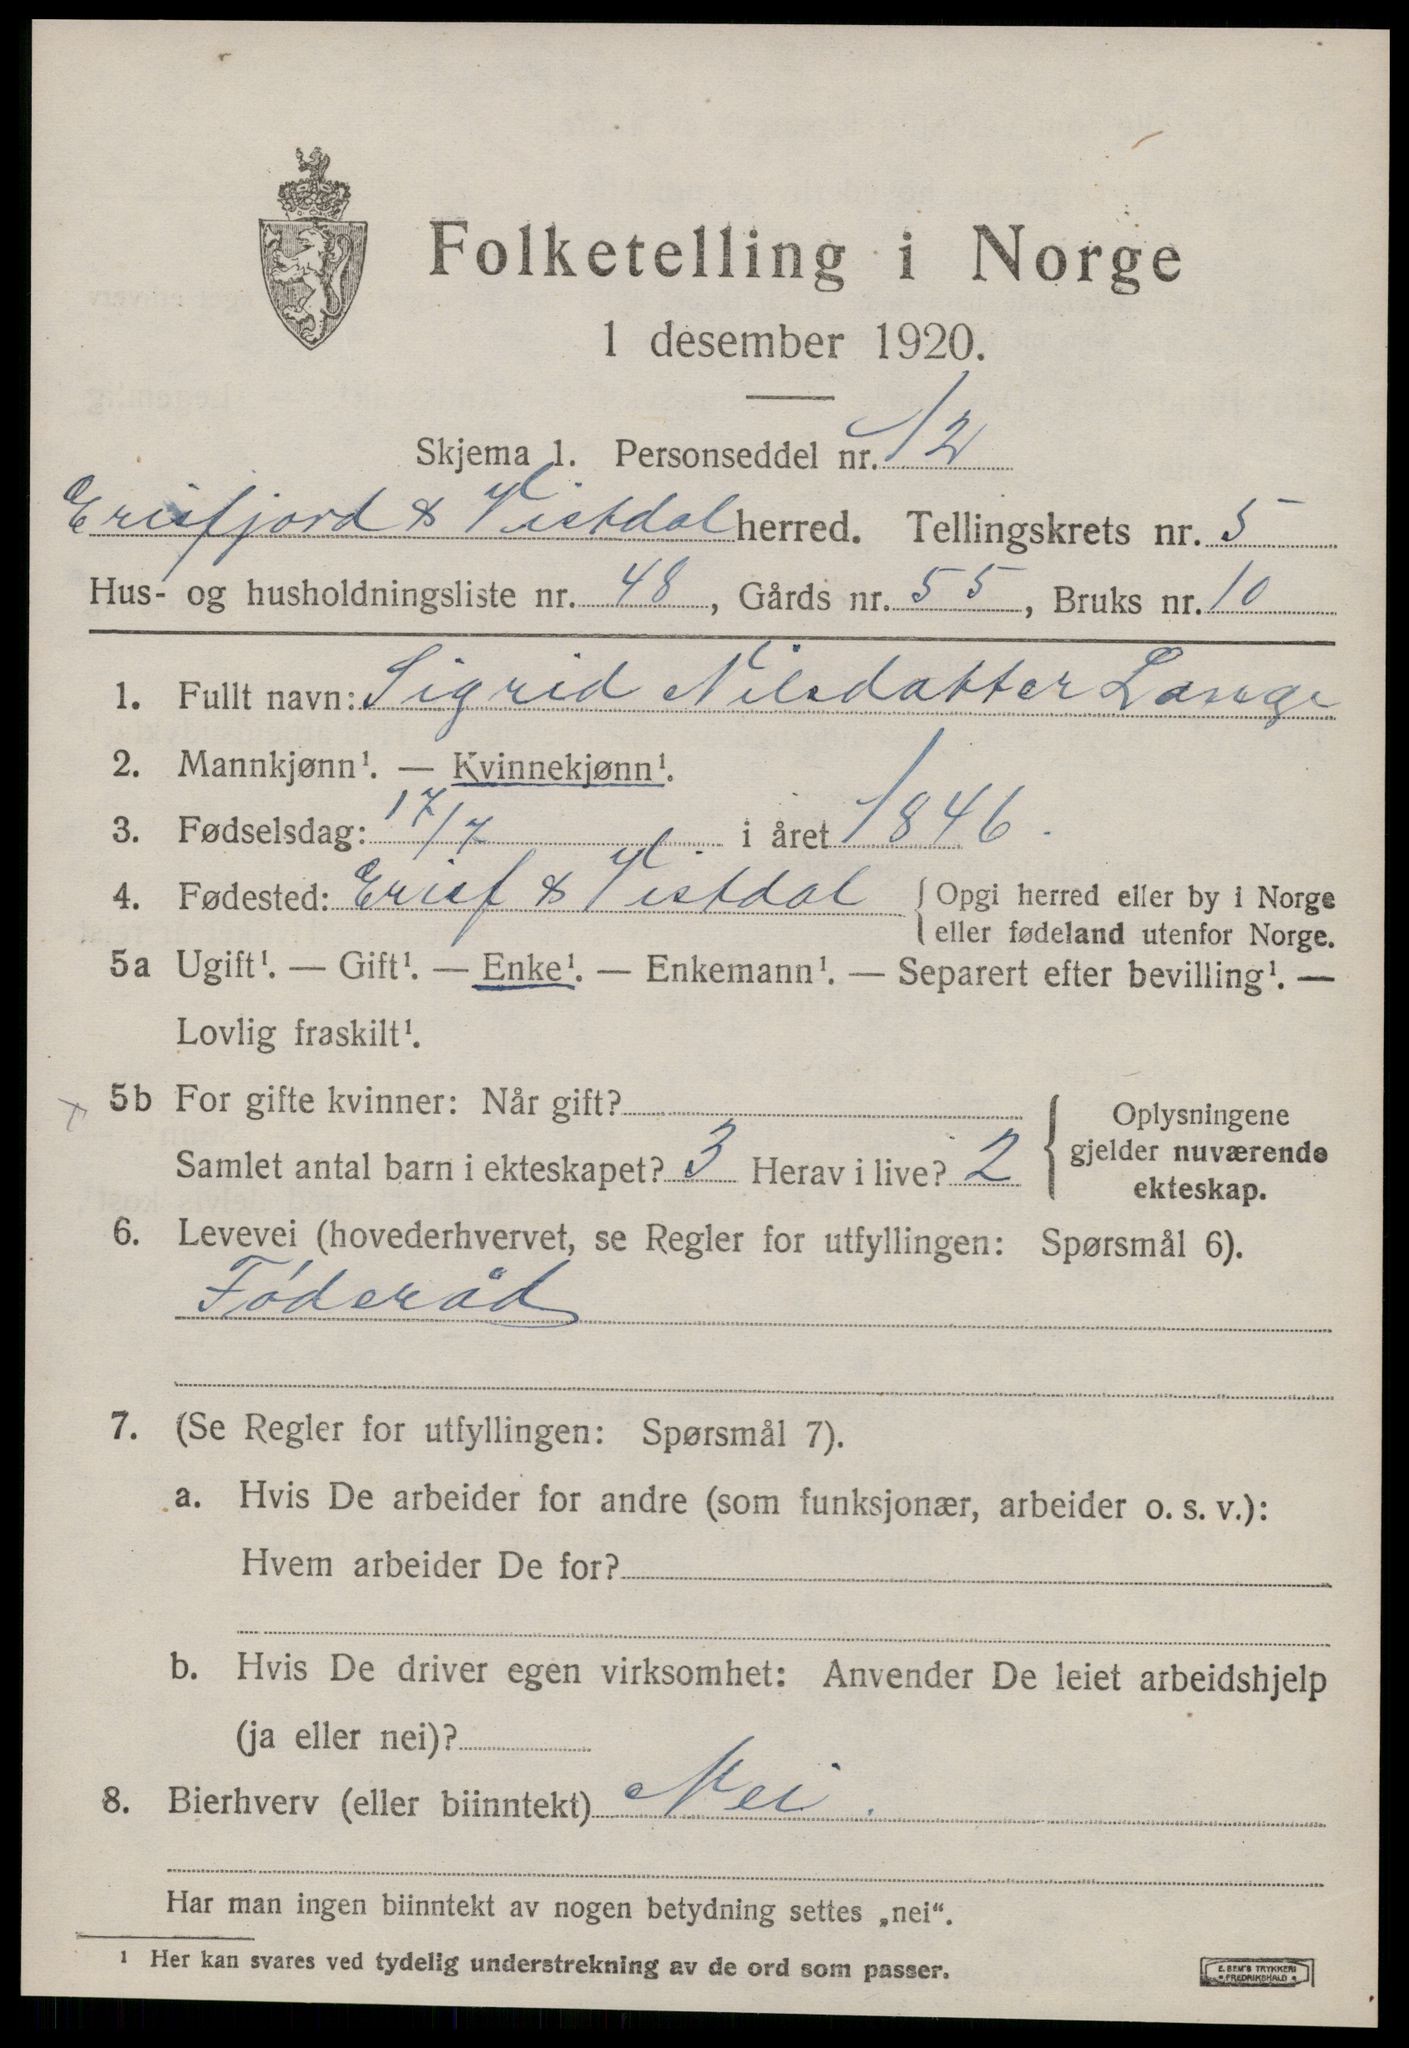 Folketelling i Norge
1 desember 1920.
Skjema 1. Personseddel nr. 12
Erisfjord & Vistdal herred. Tellingskrets nr. 5
Hus- og husholdningsliste nr. 48, Gårds nr. 55, Bruks nr. 10
1. Fullt navn: Sigrid Nilsdatter Lange
2. Mannkjønn¹. — Kvinnekjønn¹.
3. Fødselsdag: 17/7 i året 1846.
4. Fødested: Erisf & Vistdal { Opgi herred eller by i Norge
eller fødeland utenfor Norge.
5a Ugift¹. — Gift¹. — Enke¹. — Enkemann¹. — Separert efter bevilling¹. —
Lovlig fraskilt¹.
5b For gifte kvinner: Når gift?
Samlet antal barn i ekteskapet? 3 Herav i live? 2
{ Oplysningene
gjelder nuværende
ekteskap.
6. Levevei (hovederhvervet, se Regler for utfyllingen: Spørsmål 6).
Føderåd
7. (Se Regler for utfyllingen: Spørsmål 7).
a. Hvis De arbeider for andre (som funksjonær, arbeider o. s. v.):
Hvem arbeider De for?
b. Hvis De driver egen virksomhet: Anvender De leiet arbeidshjelp
(ja eller nei)?
8. Bierhverv (eller biinntekt) Nei.
Har man ingen biinntekt av nogen betydning settes „nei“.
¹ Her kan svares ved tydelig understrekning av de ord som passer.
E. SEM'S TRYKKERI
FREDRIKSHALD